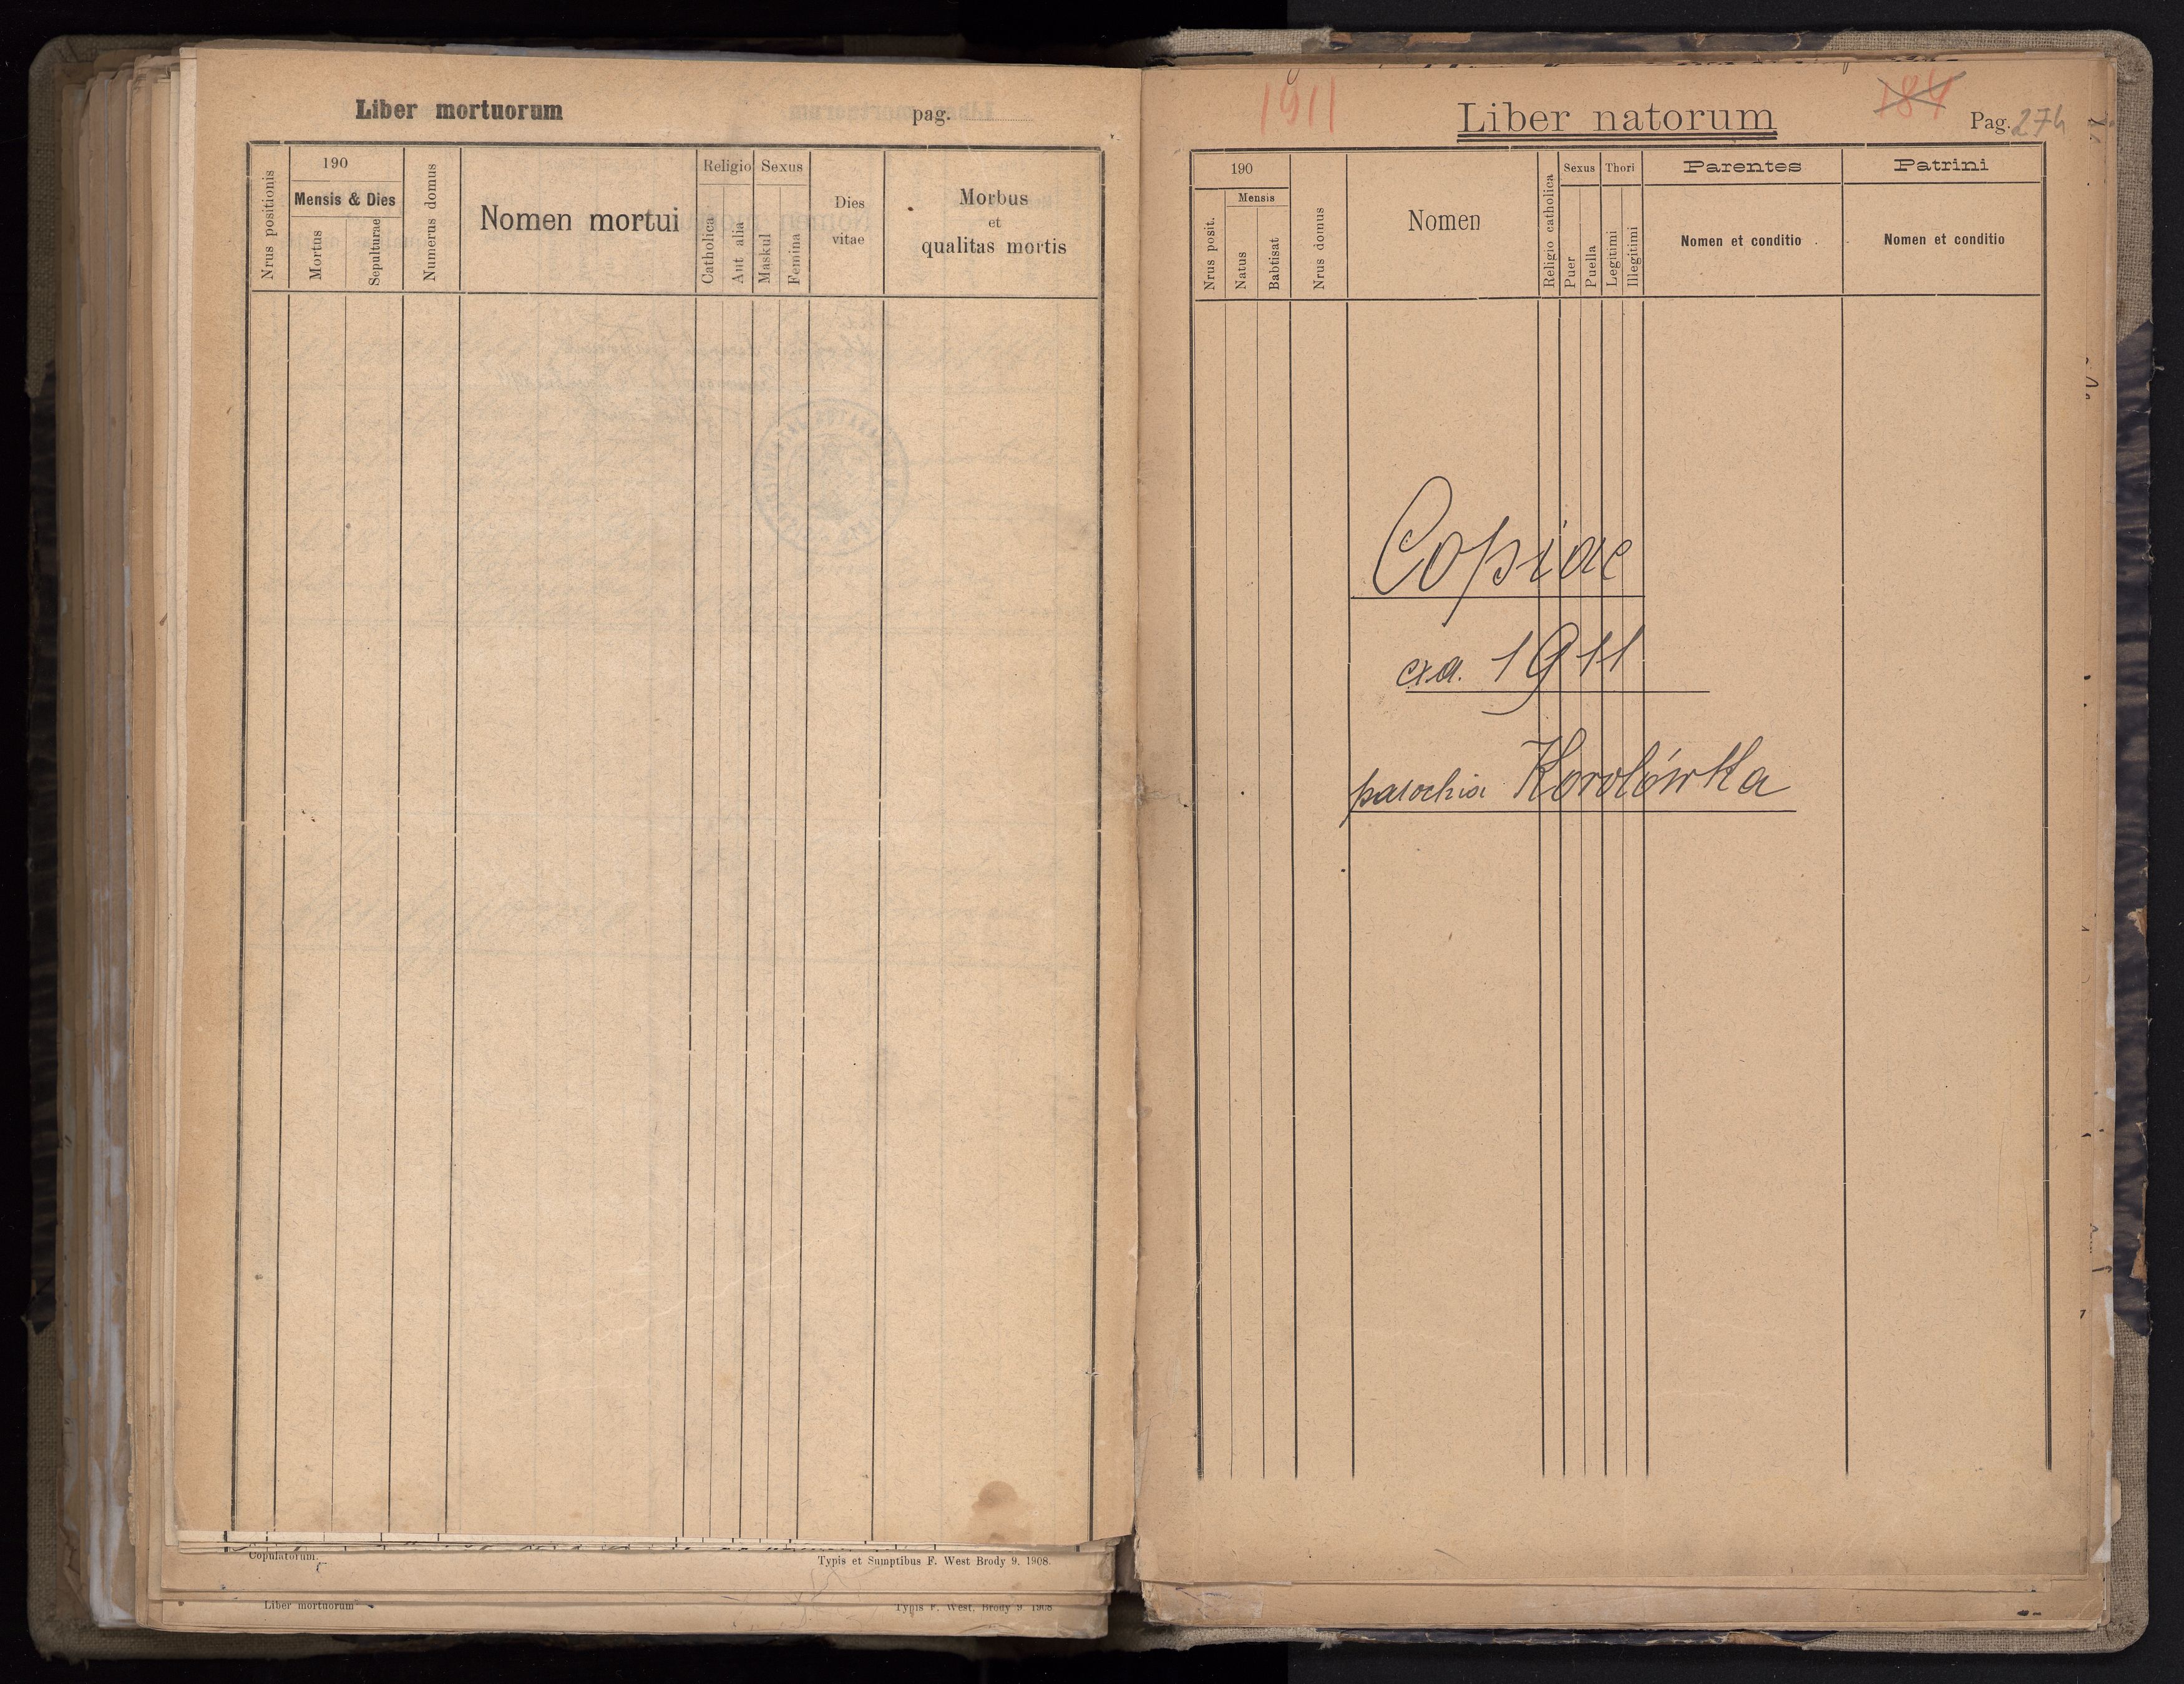 Liber mortuorum pag.
Nrus positionis
190
Mensis & Dies
Mortus
Sepulturae
Numerus domus
Nomen mortui
Religio
Catholica
Aut alia
Sexus
Maskul
Femina
Dies
vitae
Morbus
et
qualitas mortis
Copulatorum.
Typis et Sumptibus F. West Brody 9. 1908.
Liber mortuorum
Typis F. West, Brody 9 1908
1911
Liber natorum
184
Pag. 274
Nrus posit.
190
Mensis
Natus
Babtisat
Nrus domus
Nomen
Religio catholica
Sexus
Puer
Puella
Thori
Legitimi
Illegitimi
Parentes
Nomen et conditio
Patrini
Nomen et conditio
Copiae
exa. 1911
parochia Korolówka